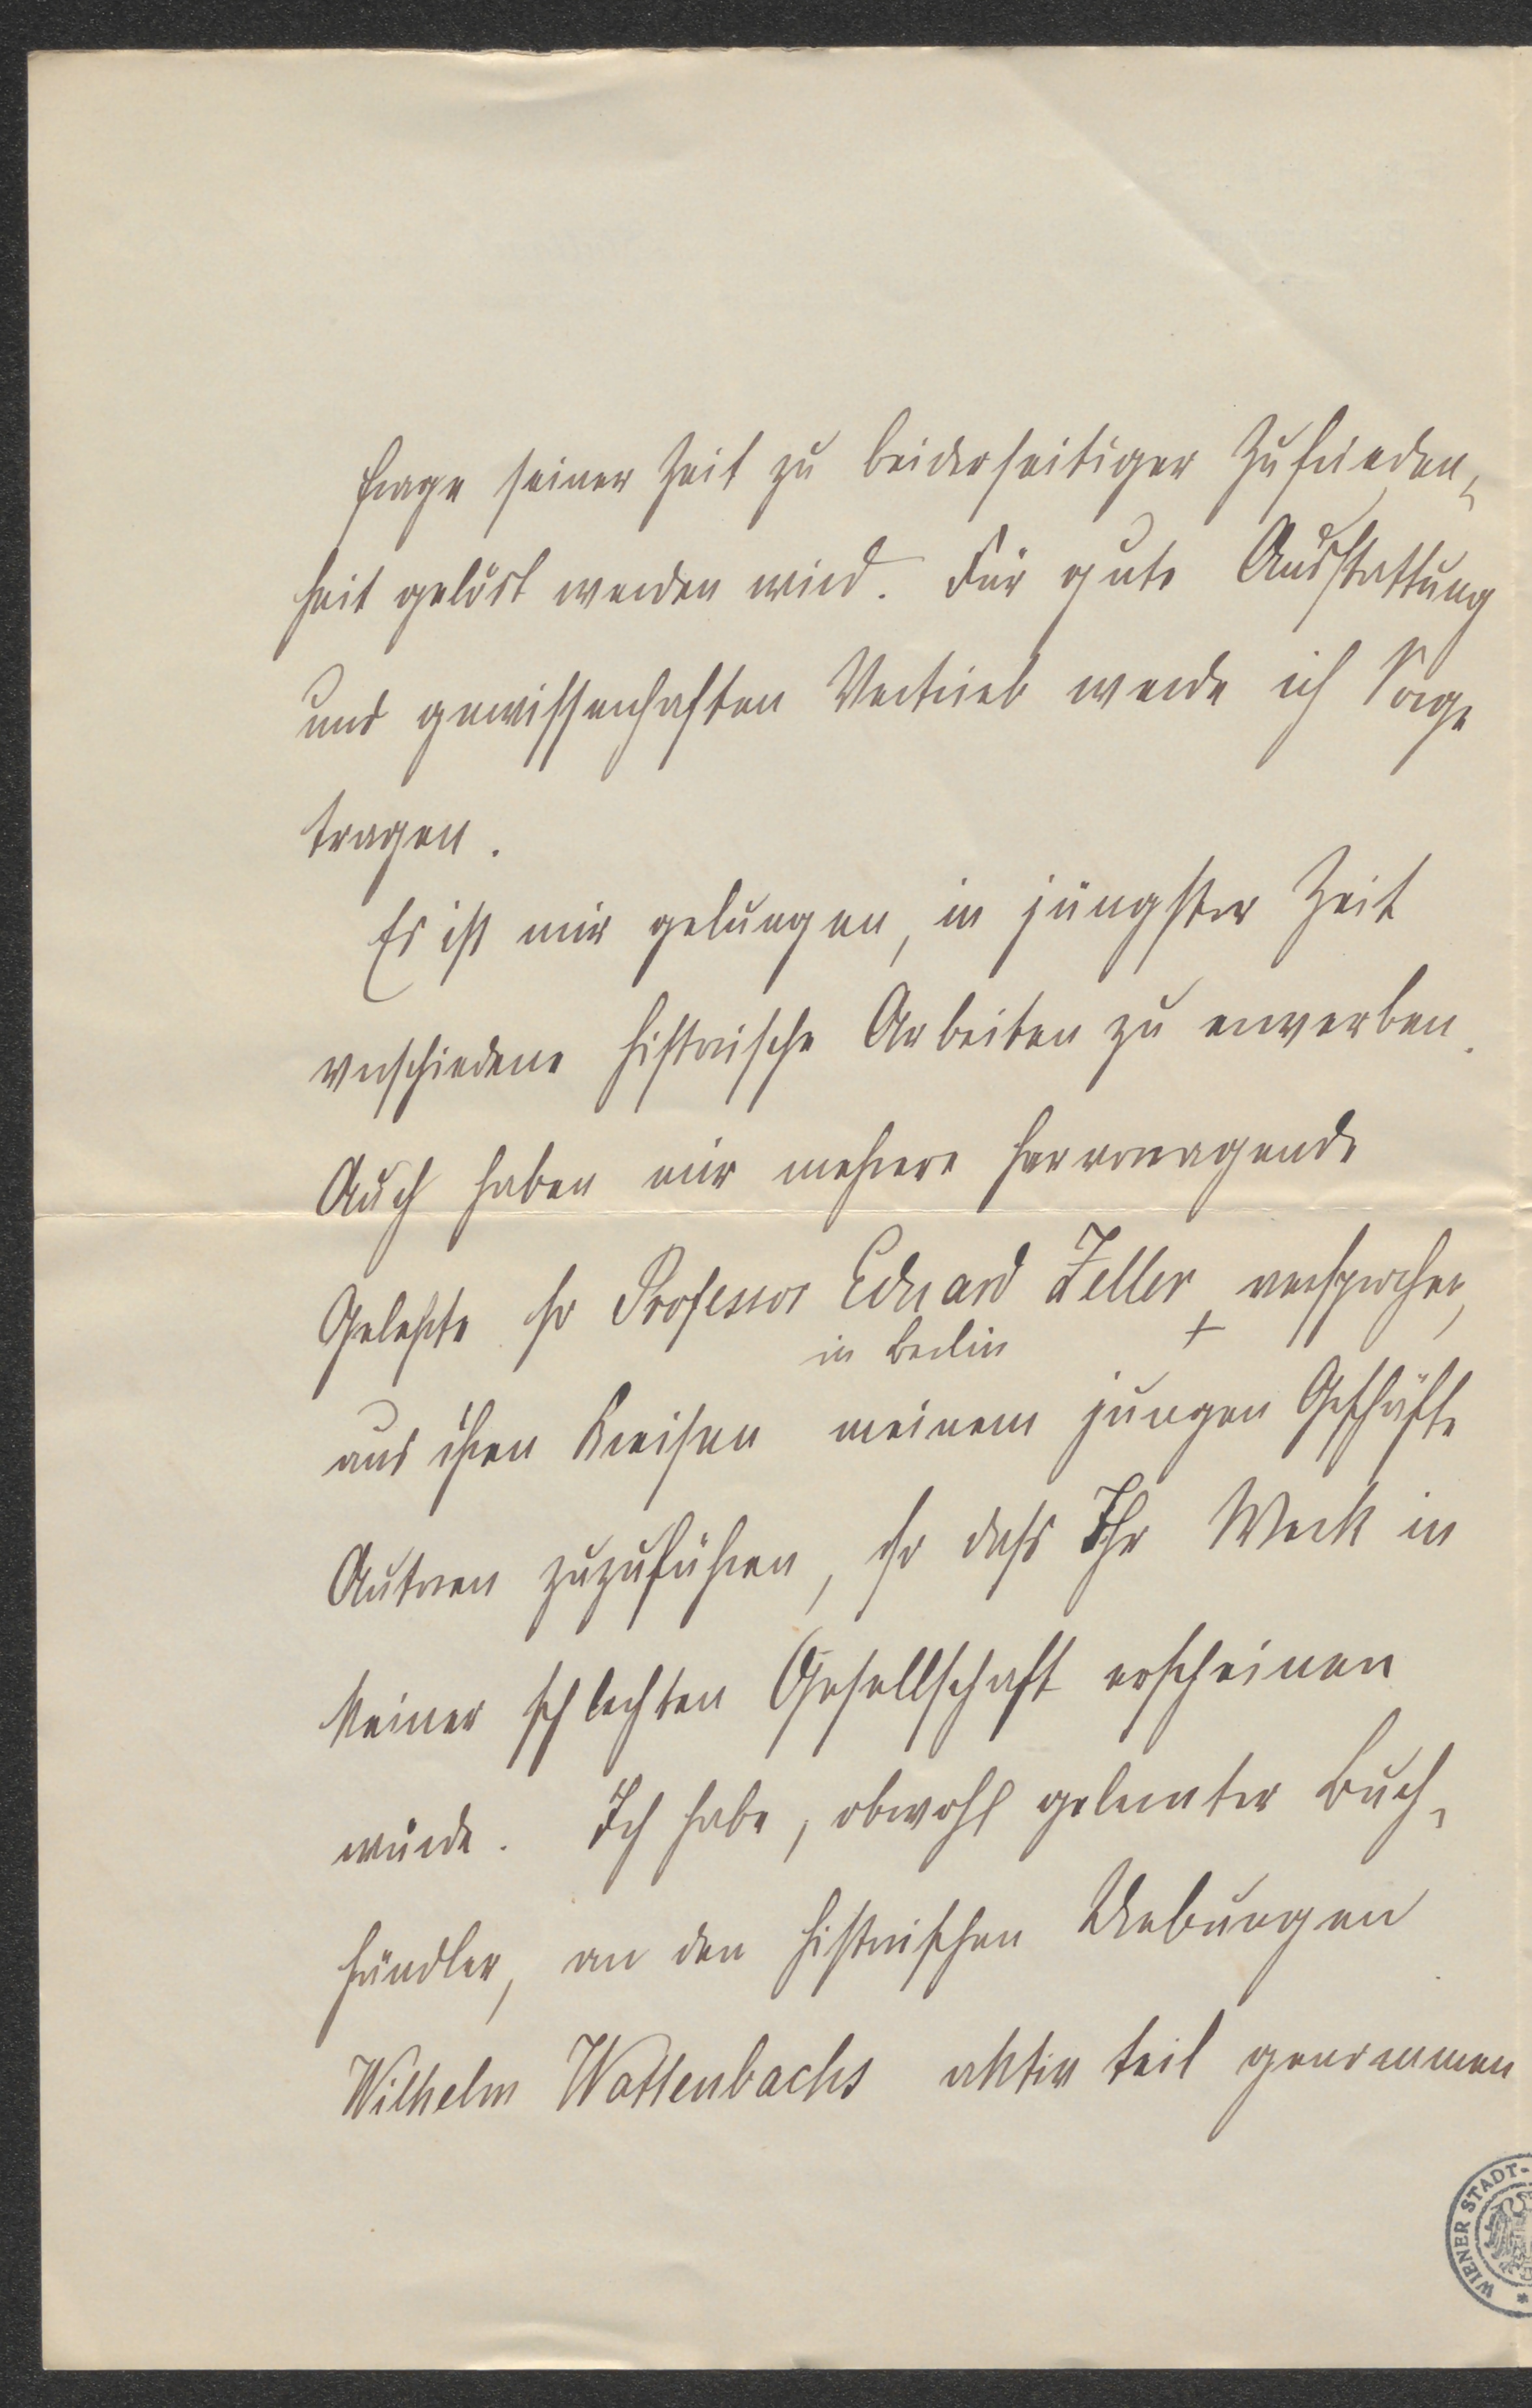 frage seiner Zeit zu beiderseitiger Zufrieden-
heit gelöst werden wird. Für gute Ausstattung
und gewissenhaften Vertrieb werde ich Sorge
tragen.
Es ist mir gelungen, in jüngster Zeit
verschiedene historische Arbeiten zu erwerben.
Auch haben mir mehrere hervorragende
Gelehrte so Professor Eduard Zeller versprochen,
in Berlin +
aus ihren Kreisen meinem jungen Geschäfte
Autoren zuzuführen, so dass Ihr Werk in
keiner schlechten Gesellschaft erscheinen
würde. Ich habe, obwohl gelernter Buch-
händler, an den historischen Uebungen
Wilhelm Wattenbachs aktiv teil genommen
WIENER STADT-